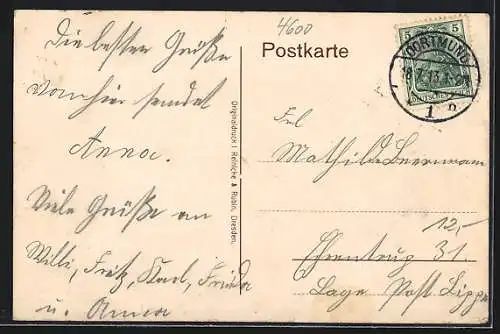 4600
Postkarte
5 5
DORTMUND
8.7.13.
1 n
Die besten Grüße
von hier sendet
Anna.
Viele Grüße an
Willi, Fritz, Karl, Frieda
u. Anna
Originaldruck i. Reinicke & Rubin, Dresden.
Frl
Mathilde
12,-
Ehrentrup 31
Lage Post Lippe